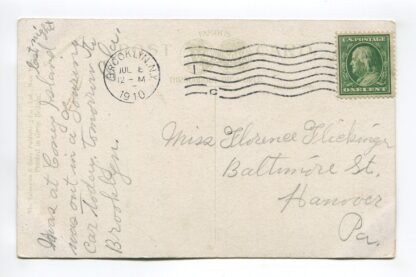 Was at Coney Island last ni
was out in a Touring
Car today, tomorrow to
Brooklyn.
POST CARD
BROOKLYN, N.Y.
JUL
12-M
1910
1
C
U.S. POSTAGE
ONE CENT
Miss Florence Flickinger
Baltimore St.
Hanover
Pa.